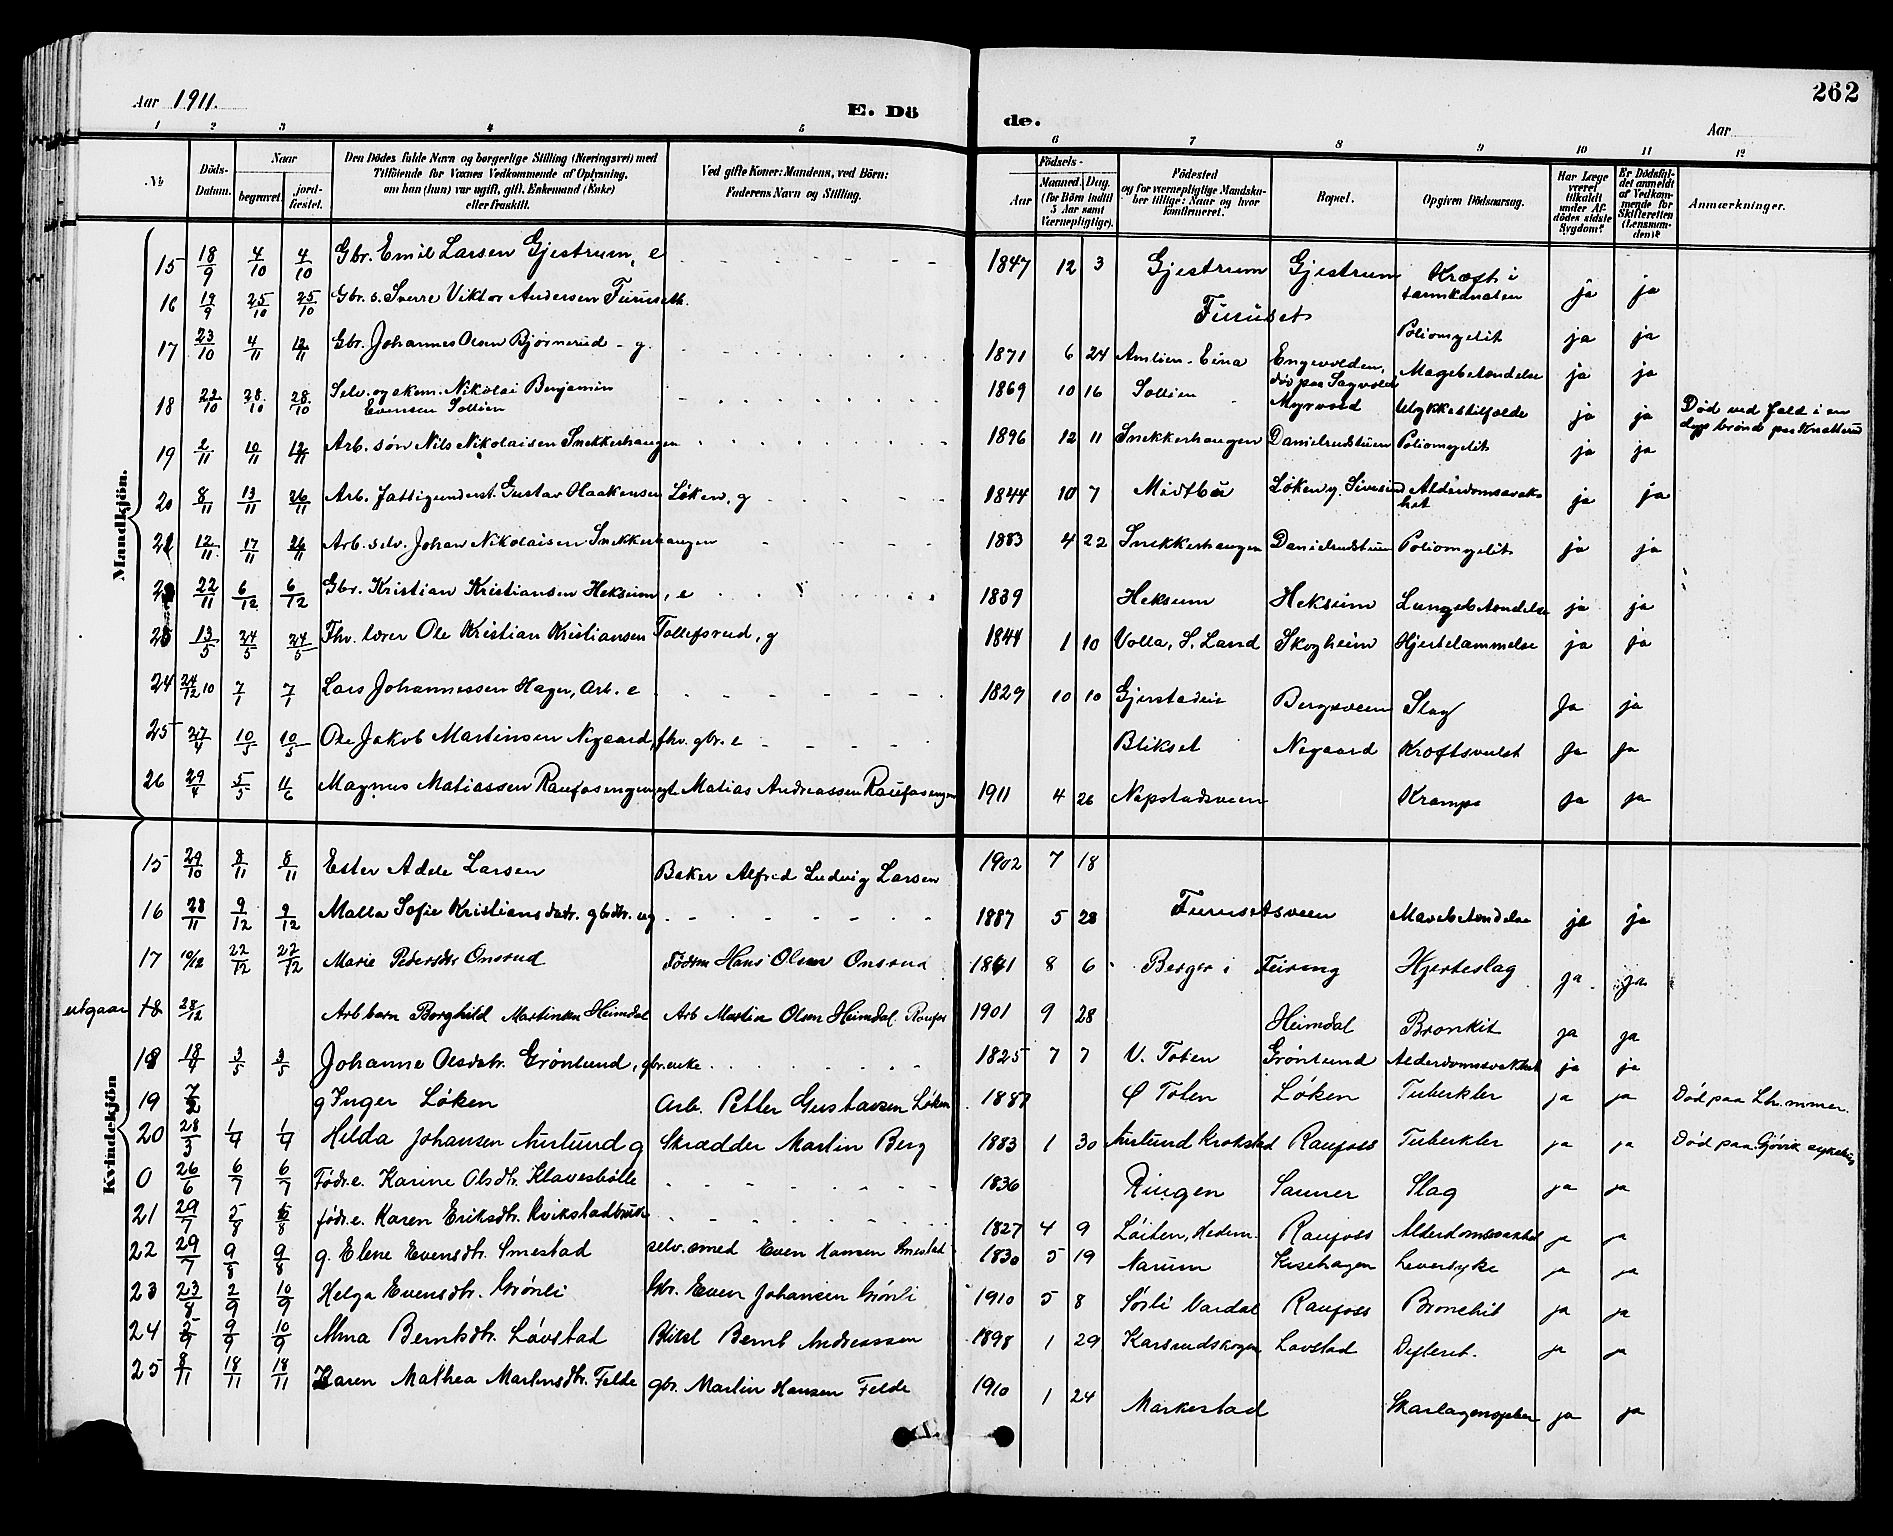 262
Aar 1911.
E. Dö
de.
Aar
1 2 3 4 5 6 7 8 9 10 11 12
No
Döds-Datum.
Naar
begravet.
jord-fæstet.
Den Dödes fulde Navn og borgerlige Stilling (Næringsvei) med
Tilföiende for Voxnes Vedkommende af Oplysning,
om han (hun) var ugift, gift, Enkemand (Enke)
eller fraskilt.
Ved gifte Koner: Mandens, ved Börn:
Faderens Navn og Stilling.
Födsels-
Aar
Maaned. Dag.
(for Börn indtil
5 Aar samt
Værnepligtige).
Födested
og for værnepligtige Mandska-
ber tillige: Naar og hvor
konfirmeret.
Bopæl.
Opgiven Dödsaarsag.
Har Læge
været
tilkaldt
under Af-
dödes sidste
Sygdom?
Er Dödsfal-
det anmeldt
af Vedkom-
mende for
Skifteretten
(Lensman-
den)?
Anmærkninger.
Mandkjön.
15 18/9 4/10 4/10 Gbr. Emil Larsen Gjestrum, e 1847 12 3 Gjestrum Gjestrum Kræft i ja ja
16 19/9 25/10 25/10 Gbr. s. Sverre Viktor Andersen Furuseth. Furuset Poliomyelit ja ja
17 23/10 4/11 12/11 Gbr. Johannes Olsen Bjørnerud - g. 1871 6 24 Amlien - Eina Engevolden, Magebetændelse ja ja
18 22/10 28/10 28/10 Selv. og økem. Nikolai Benjamin
Evensen Sollien 1869 10 16 Sollien død paa Sagvold
Myrvold Ulykkestilfælde ja ja Død ved fald i en
dyp brønd paa Knatterud
19 2/11 10/11 12/11 Arb. søn Nils Nikolaisen Snekkerhaugen 1896 12 11 Snekkerhaugen Danielrudstuen Poliomyelit ja ja
20 8/11 13/11 26/11 Arb. Fattigunderst. Gustav Haakensen Løken, g 1844 10 7 Midtbø Løken Alderdomssvak-
het ja ja
21 12/11 17/11 26/11 Arb. selv. Johan Nikolaisen Snekkerhaugen 1883 4 22 Snekkerhaugen Danielrudstuen Poliomyelit ja ja
22/11 6/12 6/12 Gbr. Kristian Kristiansen Heksum, e 1839 Heksum Heksum Lungebetændelse ja ja
13/5 24/5 24/5 Fhv. lærer Ole Kristian Kristiansen Tollefsrud, g 1844 1 10 Volla, S. Land Skogheim Hjertelammelse ja ja
24 24/12 10 7/1 7/1 Lars Johannessen Hager, Arb. e 1829 10 10 Bergsveen Slag Ja ja
25 27/4 10/5 10/5 Ole Jakob Martinsen Nygaard, fhv. gbr. e Blikset Nygaard Kræftsvulst Ja ja
26 29/4 5/5 11/6 Magnus Matiassen Raufosengen gt. Matias Andreassen Raufosengen 1911 4 26 Nøpstadsveen Krampe Ja ja
Kvindekjön
15 29/10 8/11 8/11 Ester Adele Larsen Baker Alfred Ludvig Larsen 1902 7 18
16 28/11 9/12 9/12 Malla Sofie Kristiansdatr. gbdtr. ug 1887 5 28 Furusetsveen Mavebetændelse ja ja
17 10/12 22/12 22/12 Marie Pedersdtr Onsrud Födtm Hans Olsen Onsrud 1841 8 6 Berger i Feiring Hjerteslag ja ja
utgaar 18 28/12 Arb barn Borghild Martinsen Heimdal Arb Martin Olsen Heimdal. Raufos 1901 9 28 Heimdal Bronkit ja ja
18 18/4 3/5 3/5 Johanne Olsdtr. Grönlund, gbr.enke 1825 7 7 V. Toten Grönlund Alderdomssvakhet ja ja
19 g Inger Löken Arb. Petter Gustavsen Löken 1887 Ø Toten Löken Tuberkler ja ja Død paa Lh.mmer.
20 28/3 1/4 1/4 Hilda Johansen Aurlund g Skrædder Martin Berg 1883 1 30 Aurlund Krokstad Raufoss Tuberkler ja ja Død paa Gjövik sykehus
0 26/6 6/7 6/7 Födr.e. Karine Olsdtr. Klavesbölle 1836 Ringen Sauner Slag ja ja
21 29/7 5/8 8 födr.e. Karen Eriksdtr. Kvikstadbruk 1827 4 9 Löiten, Hedem. Raufoss Alderdomssvakhet ja ja
22 29/7 9/8 9/8 g. Elene Evensdtr. Smestad selv. smed Even Hansen Smestad 1830 5 19 Narum Kisehagen Leversyke ja ja
23 23/8 2/9 10/9 Helga Evensdtr. Grönli Gbr. Even Johansen Grönli 1910 5 8 Sörli Vardal Raufoss Bronchit ja ja
24 5/9 9/9 10/9 Alma Berntsdtr. Lövstad Bernt Andreassen 1898 1 29 Karsrudskogen Lövstad Dyfterit. ja ja
25 8/11 18/11 18/11 Karen Mathea Martinsdtr. Felde gbr. Martin Hansen Felde 1910 1 24 Markestad Skarlagensfeber ja ja